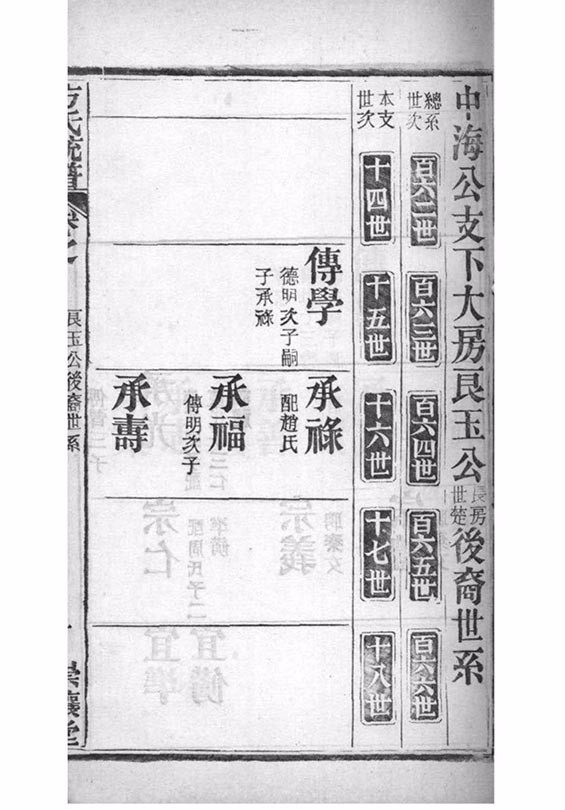 中海公支下大房良玉公長房世楚後裔世系
總系世次
百六二世
百六三世
百六四世
百六五世
百六六世
本支世次
十四世
十五世
十六世
十七世
十八世
傳學
德明次子嗣
子承祿
承祿
配趙氏
承福
傳明次子
承壽
方氏統譜
良玉公後裔世系